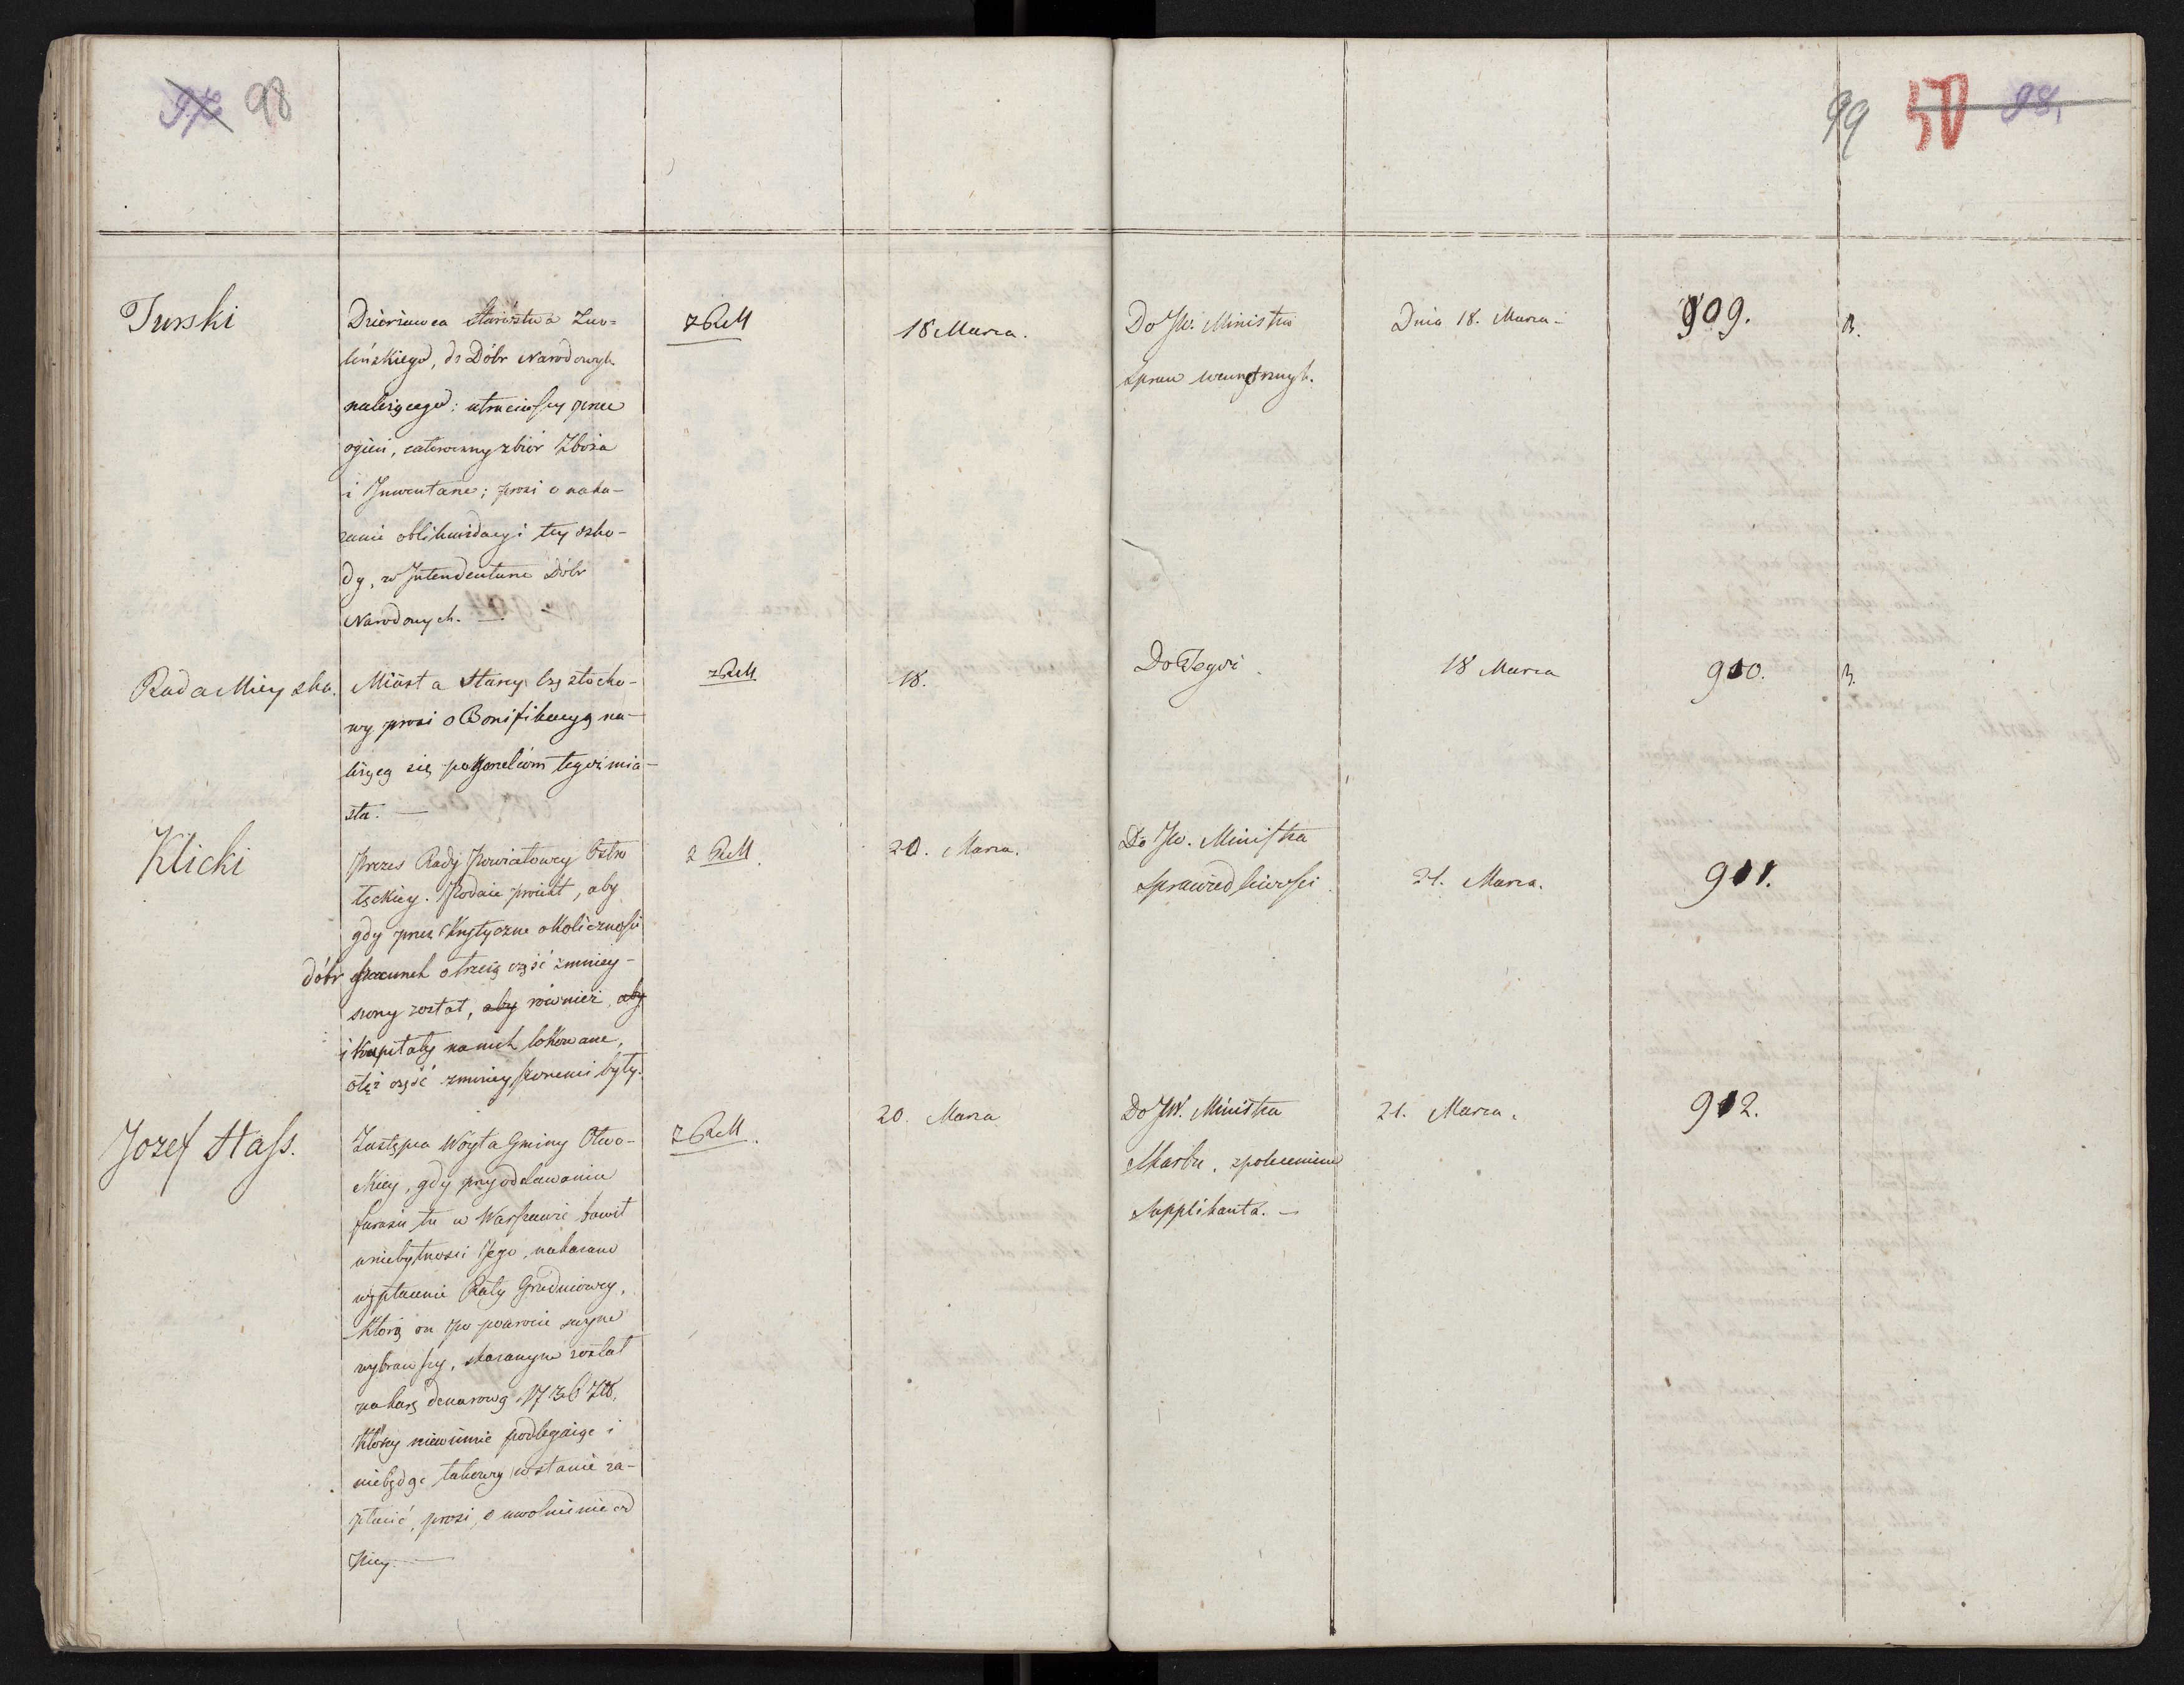 97 98
99 50 98,
Turski
Dzierżawca Starostwa Zwo=
leńskiego, do Dóbr Narodowych
należącego; utraciwszy przez
ogień, całoroczny zbiór Zboża
i Jnwentarze; prosi o naka-
zanie oblikwidacyi tey szko-
dy, w Jntendenturze Dóbr
Narodowych. —
z RM
18 Marca.
Do JW. Ministra
Spraw wewnętrznych.
Dnia 18. Marca
909.
B.
Rada Mieyska.
Miasta Starey Częstocho-
wy prosi o Bonifikacyą na-
leżącą się pogorzelcom tegoż mia-
sta. —
z RM
18.
Do Tegoż.
18 Marca
910.
B.
Klicki
Prezes Rady Powiatowey Ostro
łęckiey. Podaie proiekt, aby
gdy przez krytyczne okoliczności
dóbr szacunek o trzecią część zmniey-
szony został, aby również aby
i kapitały na nich lokowane,
o tęż część zmnieyszonemi były.
z RM.
20. Marca.
Do JW. Ministra
Sprawiedliwości.
21. Marca.
911.
Jozef Stass.
Zastępca Woyta Gminy Otwo-
ckiey, gdy przy oddawaniu
furażu tu w Warszawie bawił
w niebytności Jego, nakazano
wypłacenie Raty Grudniowey,
którą on po powrocie swym
wybrawszy, skazanym został
na karę denarową 1736 Złł.
którey niewinnie podlegaiąc i
niebędąc takowey w stanie za-
płacić, prosi, o uwolnienie od
Niey. —
z RM.
20. Marca
Do JW. Ministra
Skarbu, z poleceniem
Supplikanta. —
21. Marca.
912.